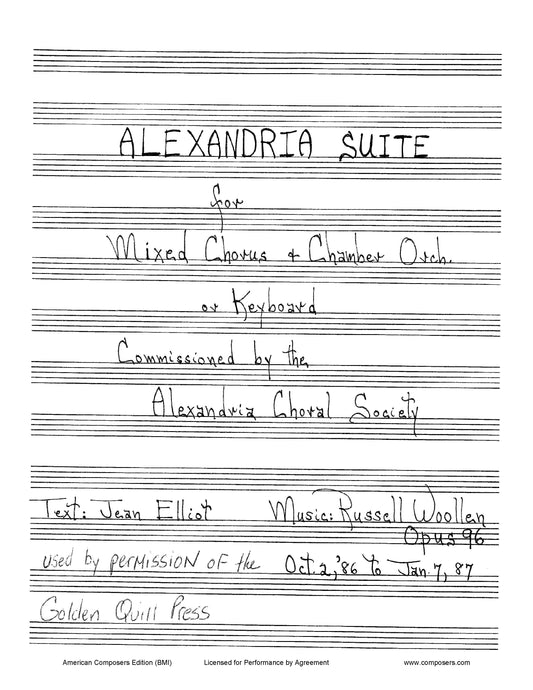 ALEXANDRIA SUITE
for
Mixed Chorus & Chamber Orch.
or Keyboard
Commissioned by the
Alexandria Choral Society
Text: Jean Elliot
Music: Russell Woollen
Opus 96
used by permission of the
Oct. 2, '86 to Jan. 7, 87
Golden Quill Press
American Composers Edition (BMI) Licensed for Performance by Agreement www.composers.com